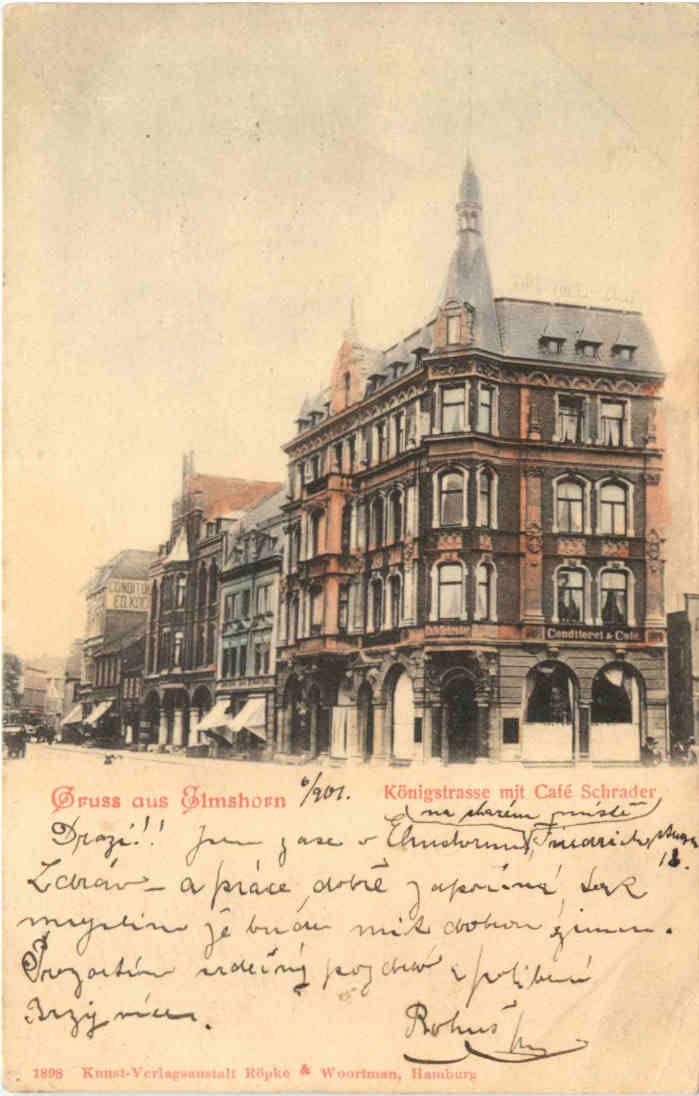 CONDITO
ED. KOC
Conditorei & Café
Gruss aus Elmshorn 6/901. Königstrasse mit Café Schrader.
(na starém místě)
Drazí!! Jsem zase v Elmshornu, Friedrich
12.
Zdráv – a práce dobře započíná, tak
myslím že budu mít dobrou zimu.
Prozatím srdečný pozdrav a políbení
Brzy více. Bohuš
1898 Kunst-Verlagsanstalt Röpke & Woortman, Hamburg